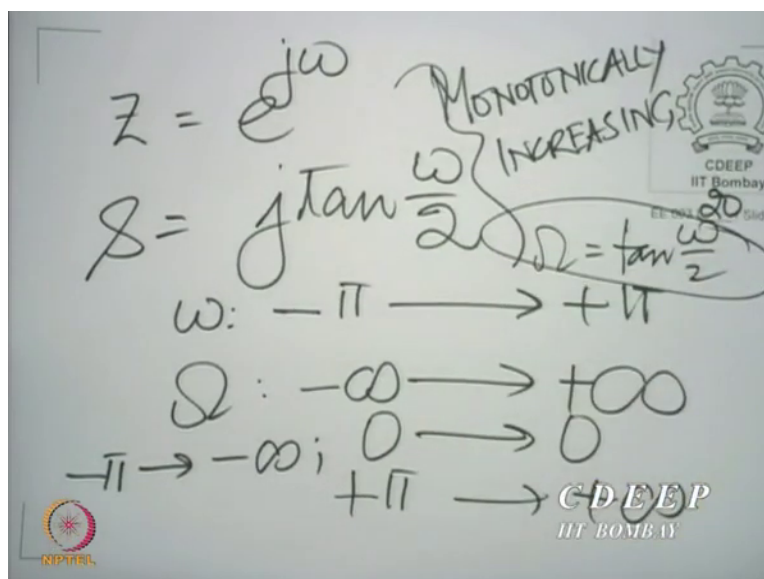 Z = e^jω
MONOTONICALLY
INCREASING,
CDEEP
IIT Bombay
S = j tan ω/2
Ω = tan ω/2
20
ω: -π → +π
Ω: -∞ → +∞
-π → -∞; 0 → 0
+π → +∞
CDEEP
IIT BOMBAY
NPTEL